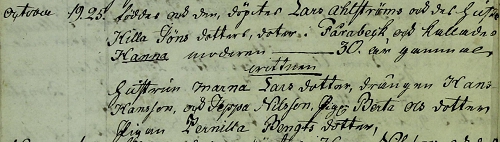 october 19.25. föddes och den, döptes Lars Ahlströms och des Hustru
Killa Jöns dotters, doter i Fårabeck och kallades
Hanna moderen 30. år gammal,
vittnen
Hustrun Marna Lars dotter, drängen Hans
Hansson, och Jeppa Nilsson, Pig: Berta Ols dotter
Pigan Pernilla Bengts dotter,